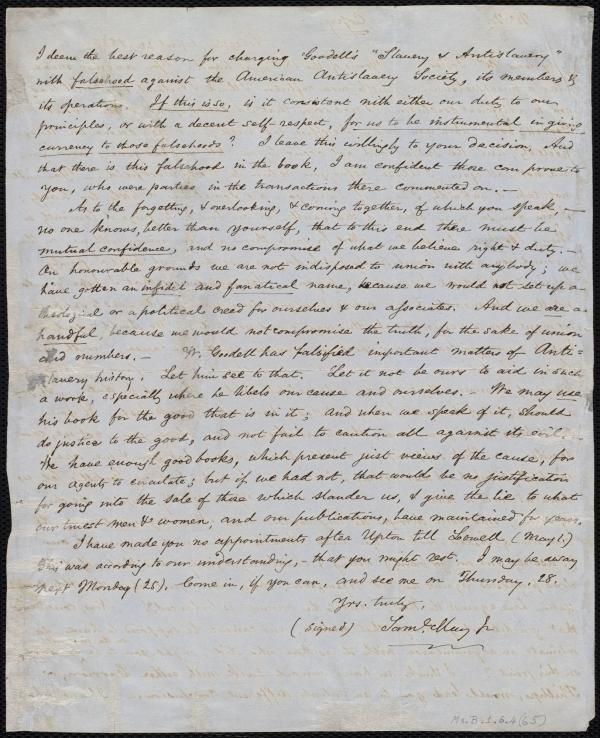 I deem the best reason for charging Goodell's "Slavery & Antislavery"
with falsehood against the American Antislavery Society, its members &
its operations. If this is so, is it consistent with either our duty to our
principles, or with a decent self-respect, for us to be instrumental in giving
currency to those falsehoods? I leave this willingly to your decision. And
that there is this falsehood in the book, I am confident those can prove to
you, who were parties in the transactions there commented on. —
As to the forgetting, & overlooking, & coming together, of which you speak, —
no one knows, better than yourself, that to this end there must be
mutual confidence, and no compromise of what we believe right & duty. —
On honourable grounds we are not indisposed to union with anybody; we
have gotten an infidel and fanatical name, because we would not set up a
theological or a political creed for ourselves & our associates. And we are a
handful, because we would not compromise the truth, for the sake of union
and numbers. — W. Goodell has falsified important matters of Anti=
slavery history. Let him see to that. Let it not be ours to aid in such
a work, especially where he libels our cause and ourselves. — We may use
his book for the good that is in it; and when we speak of it, should
do justice to the good, and not fail to caution all against its evil. —
We have enough good books, which present just views of the cause, for
our agents to circulate; but if we had not, that would be no justification
for going into the sale of those which slander us, & give the lie to what
our truest men & women, and our publications, have maintained for years.
I have made you no appointments after Upton till Lowell (May 1.)
This was according to our understanding, — that you might rest. I may be away
next Monday (25). Come in, if you can, and see me on Thursday, 28.
Yrs. truly,
(signed) Saml. May Jr
Ms. B. 1. 6. 4 (65)